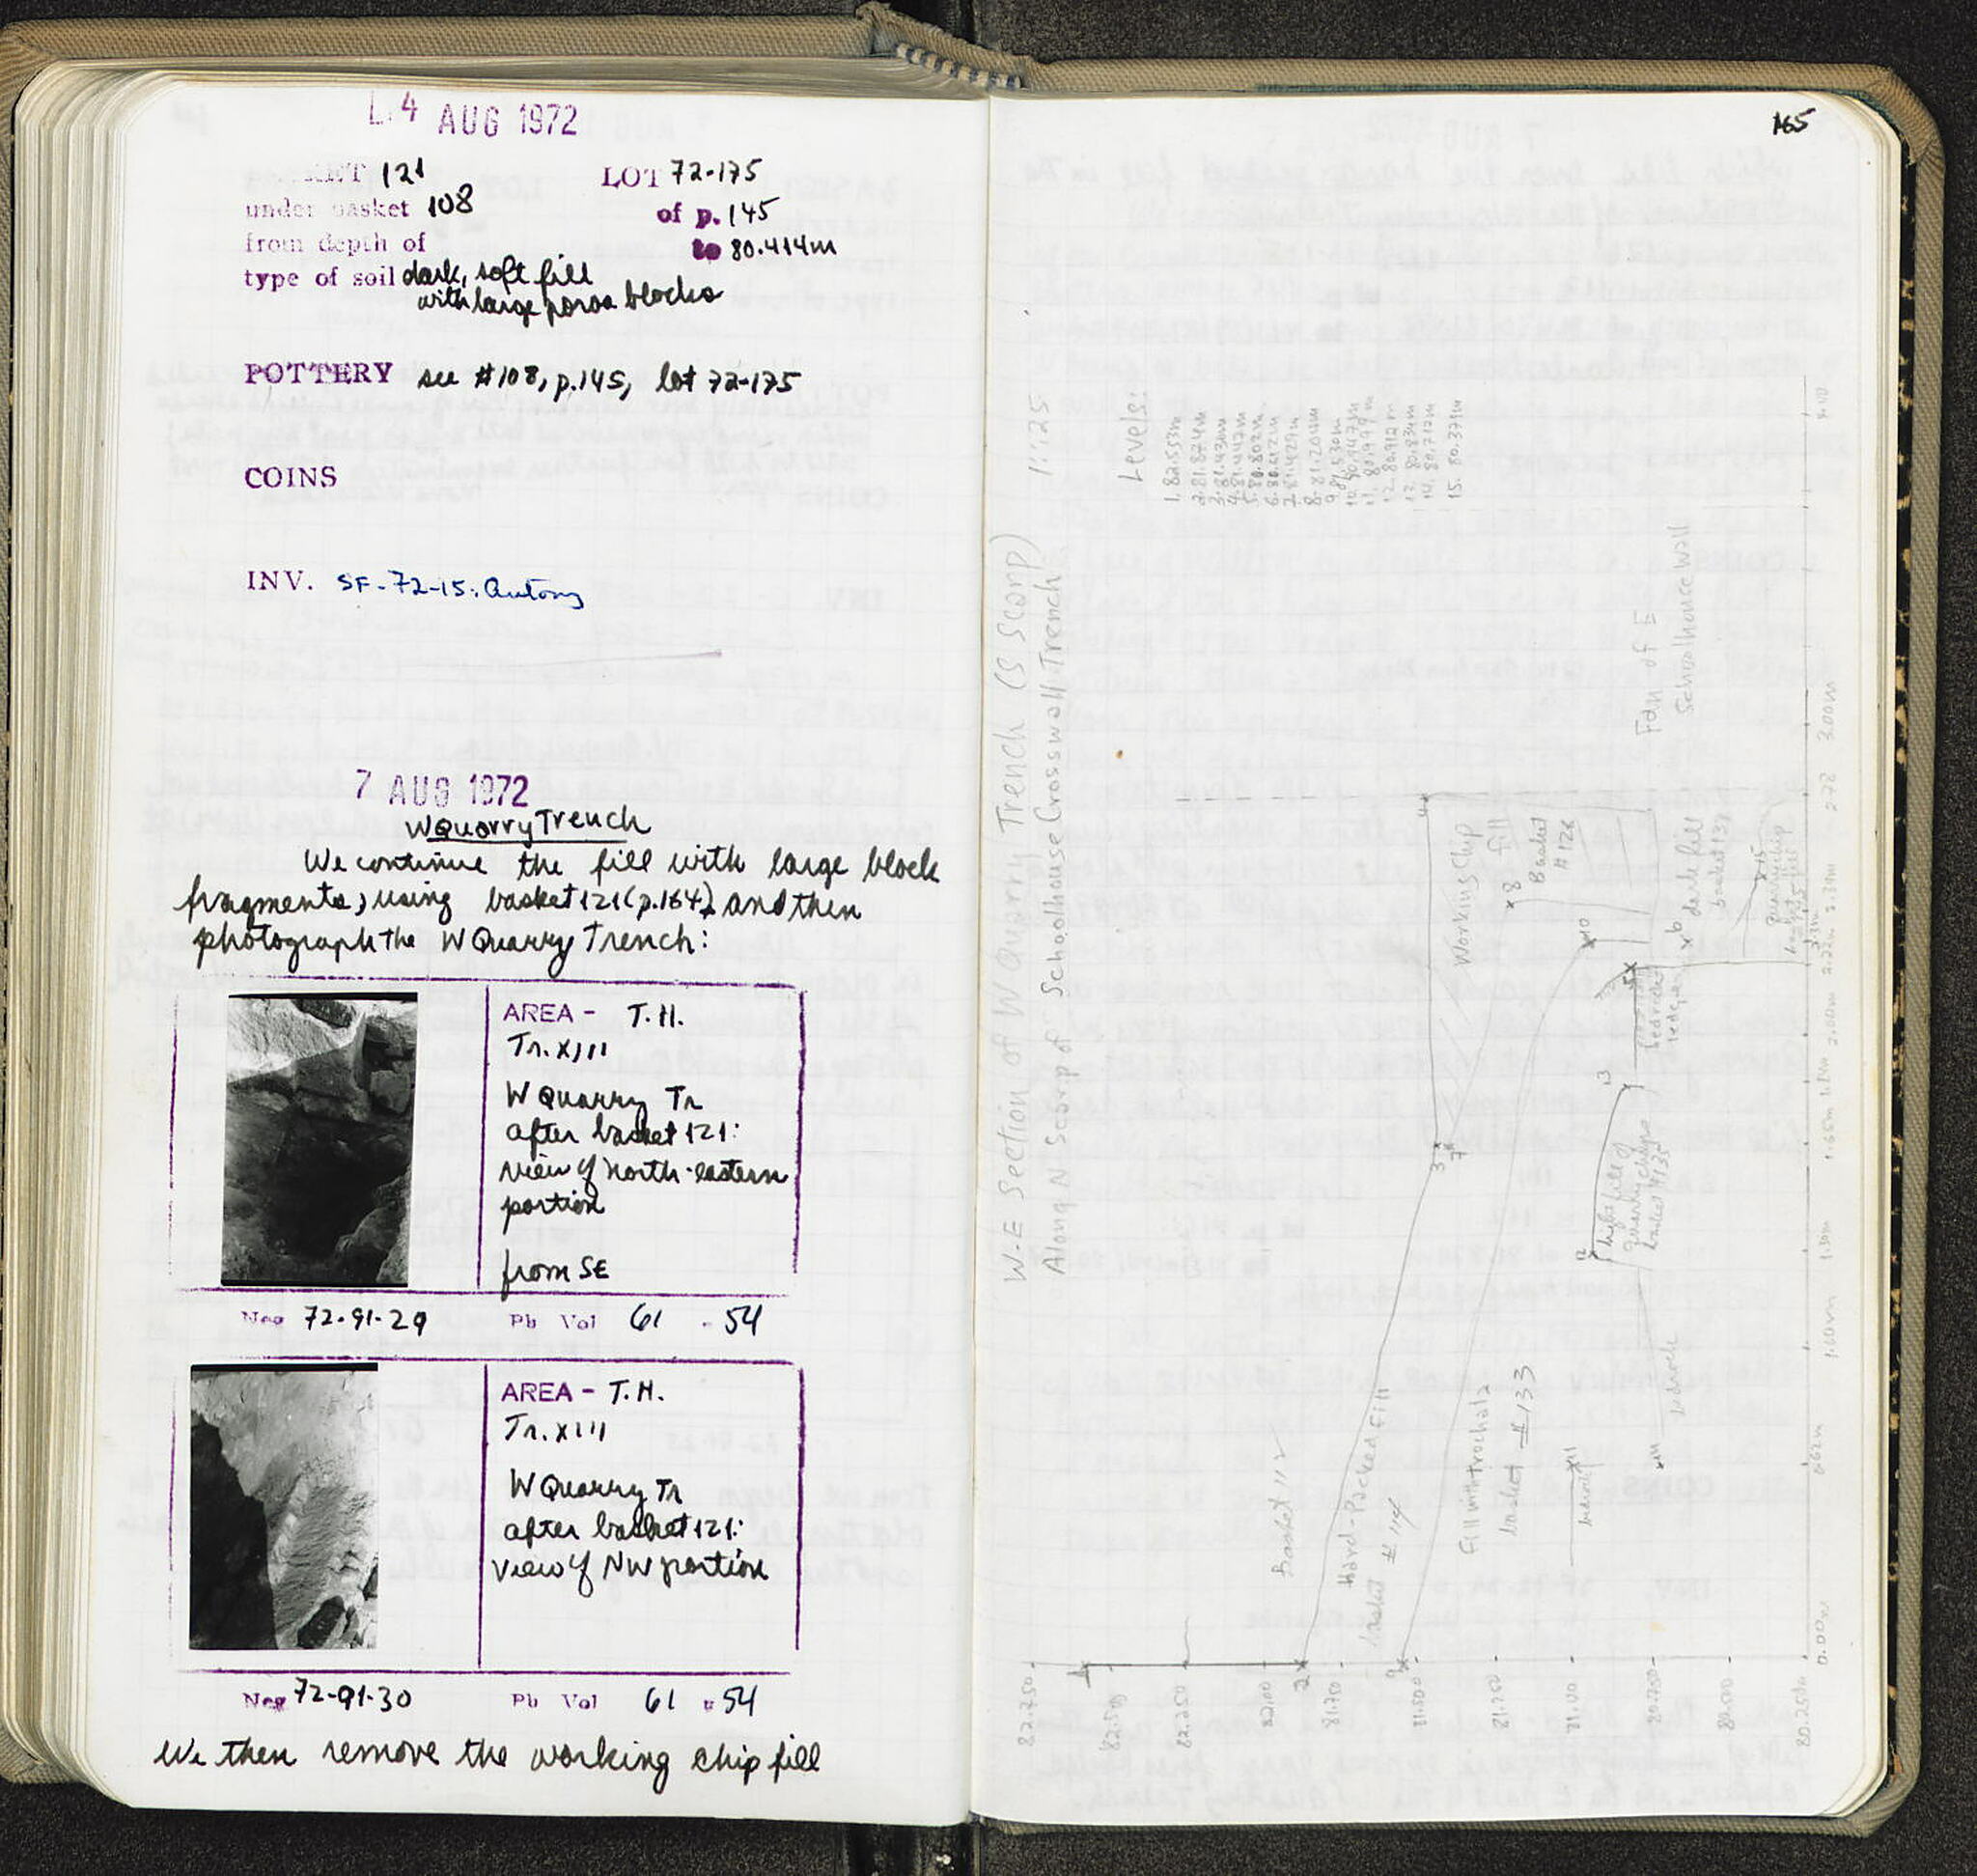 L. 4 AUG 1972
121
LOT 72-175
under basket 108
of p. 145
from depth of
to 80.414m
type of soil dark, soft fill
with large poros blocks
POTTERY see #108, p.145, lot 72-175
COINS
INV. SF-72-15:
7 AUG 1972
W Quarry Trench
We continue the fill with large block
fragments, using basket 121 (p.164) and then
photograph the W Quarry Trench:
AREA - T.H.
Tr. XIII
W Quarry Tr
after basket 121:
view of north-eastern
portion
from SE
Neg 72-91-29 Ph Vol 61 - 54
AREA - T.H.
Tr. XIII
W Quarry Tr
after basket 121:
view of NW portion
Neg 72-91-30 Ph Vol 61 54
We then remove the working chip fill
165
W-E Section of W Quarry Trench (S Scarp) 1:25
Along N Scarp of Schoolhouse Crosswall Trench
Levels:
1. 82.553m
2. 81.874m
12. 80.912m
13. 80.834m
14. 80.712m
15. 80.379m
Fdn of E
Schoolhouse Wall
Working Chip
Fill
Basket
#126
dark fill
basket 137
bedrock
ledge
light fill of
quarry chips
basket #135
Basket 112
Hard-Packed Fill
basket #114
Fill with trochala
basket #133
bedrock
bedrock
82.750
82.500
82.250
82.00
81.750
81.500
81.250
81.00
80.750
80.500
80.250m
0.00m
0.62m
1.00m
1.30m
2.00m
2.78
3.00m